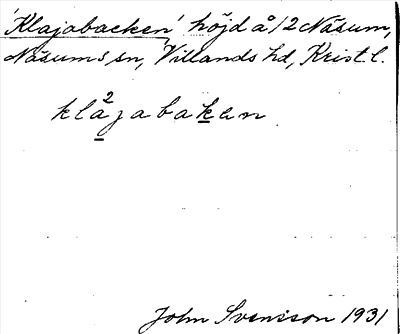 'Klajabacken' höjd å 12 Näsum,
Näsums sn, Villands hd, Krist. l.
kla²jabaken
John Svensson 1931